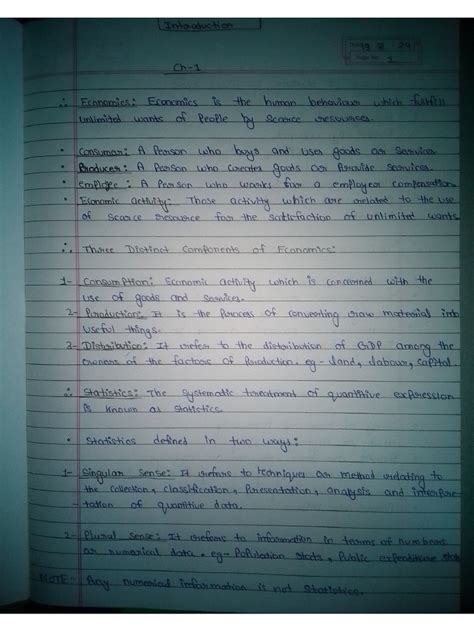 Introduction
Page No. 1
Ch-1
∴ Economics: Economics is the human behaviour which fulfill
unlimited wants of People by Scarce resources.
• Consumer: A Person who buys and uses goods or services
• Producer: A Person who Creates goods or Provide services.
• employee: A Person who works for a employer compensation
• Economic activity: Those activity which are related to the use
of Scarce resource for the satisfaction of unlimited wants
∴ Three Distinct Components of Economics:
1- Consumption: Economic activity which is concerned with the
use of goods and services.
2- Production: It is the Process of converting raw material into
useful things.
3- Distribution: It refer to the distribution of GDP among the
owners of the factors of Production. eg- land, labour, capital.
∴ Statistics: The systematic treatment of quantitive expression
is known as statistics.
• Statistics defined in two ways:
1- Singular sense: It refers to techniques or method relating to
the collection, classification, Presentation, analysis and interpre
-tation of quantitive data.
2- Plural sense: It refers to information in terms of numbers
or numerical data. eg- Population stats, Public expenditure stats
NOTE- Any numerical information is not statistics.